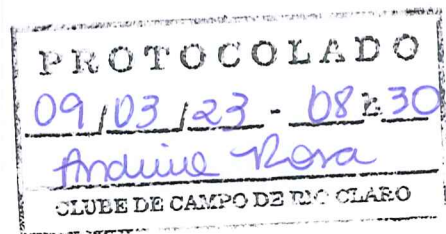 PROTOCOLADO
09/03/23 - 08h30
Rosa
CLUBE DE CAMPO DE RIO CLARO